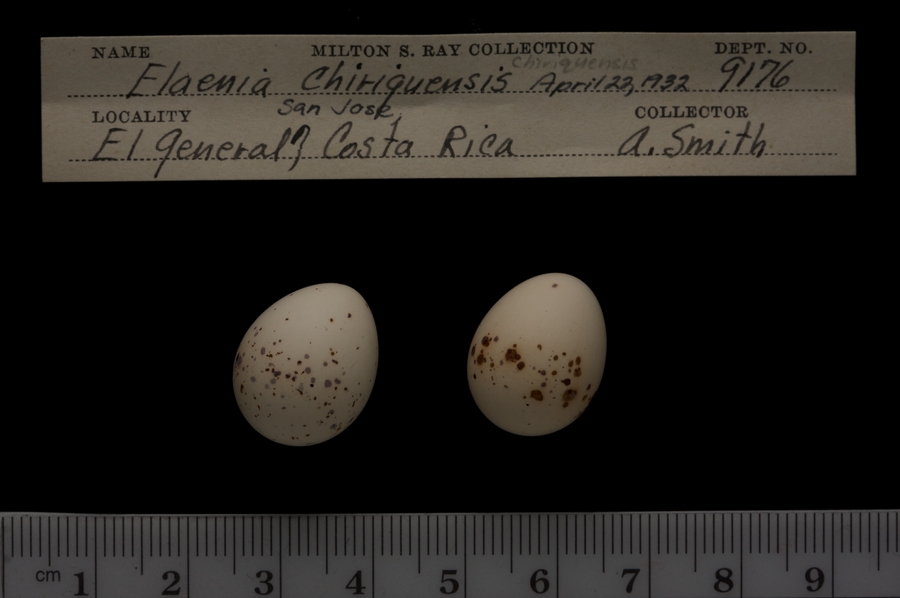 NAME MILTON S. RAY COLLECTION DEPT. NO.
chiriquensis
Elaenia Chiriquensis April 22, 1932 9176
LOCALITY San Jose, COLLECTOR
El General, Costa Rica A. Smith
cm 1 2 3 4 5 6 7 8 9